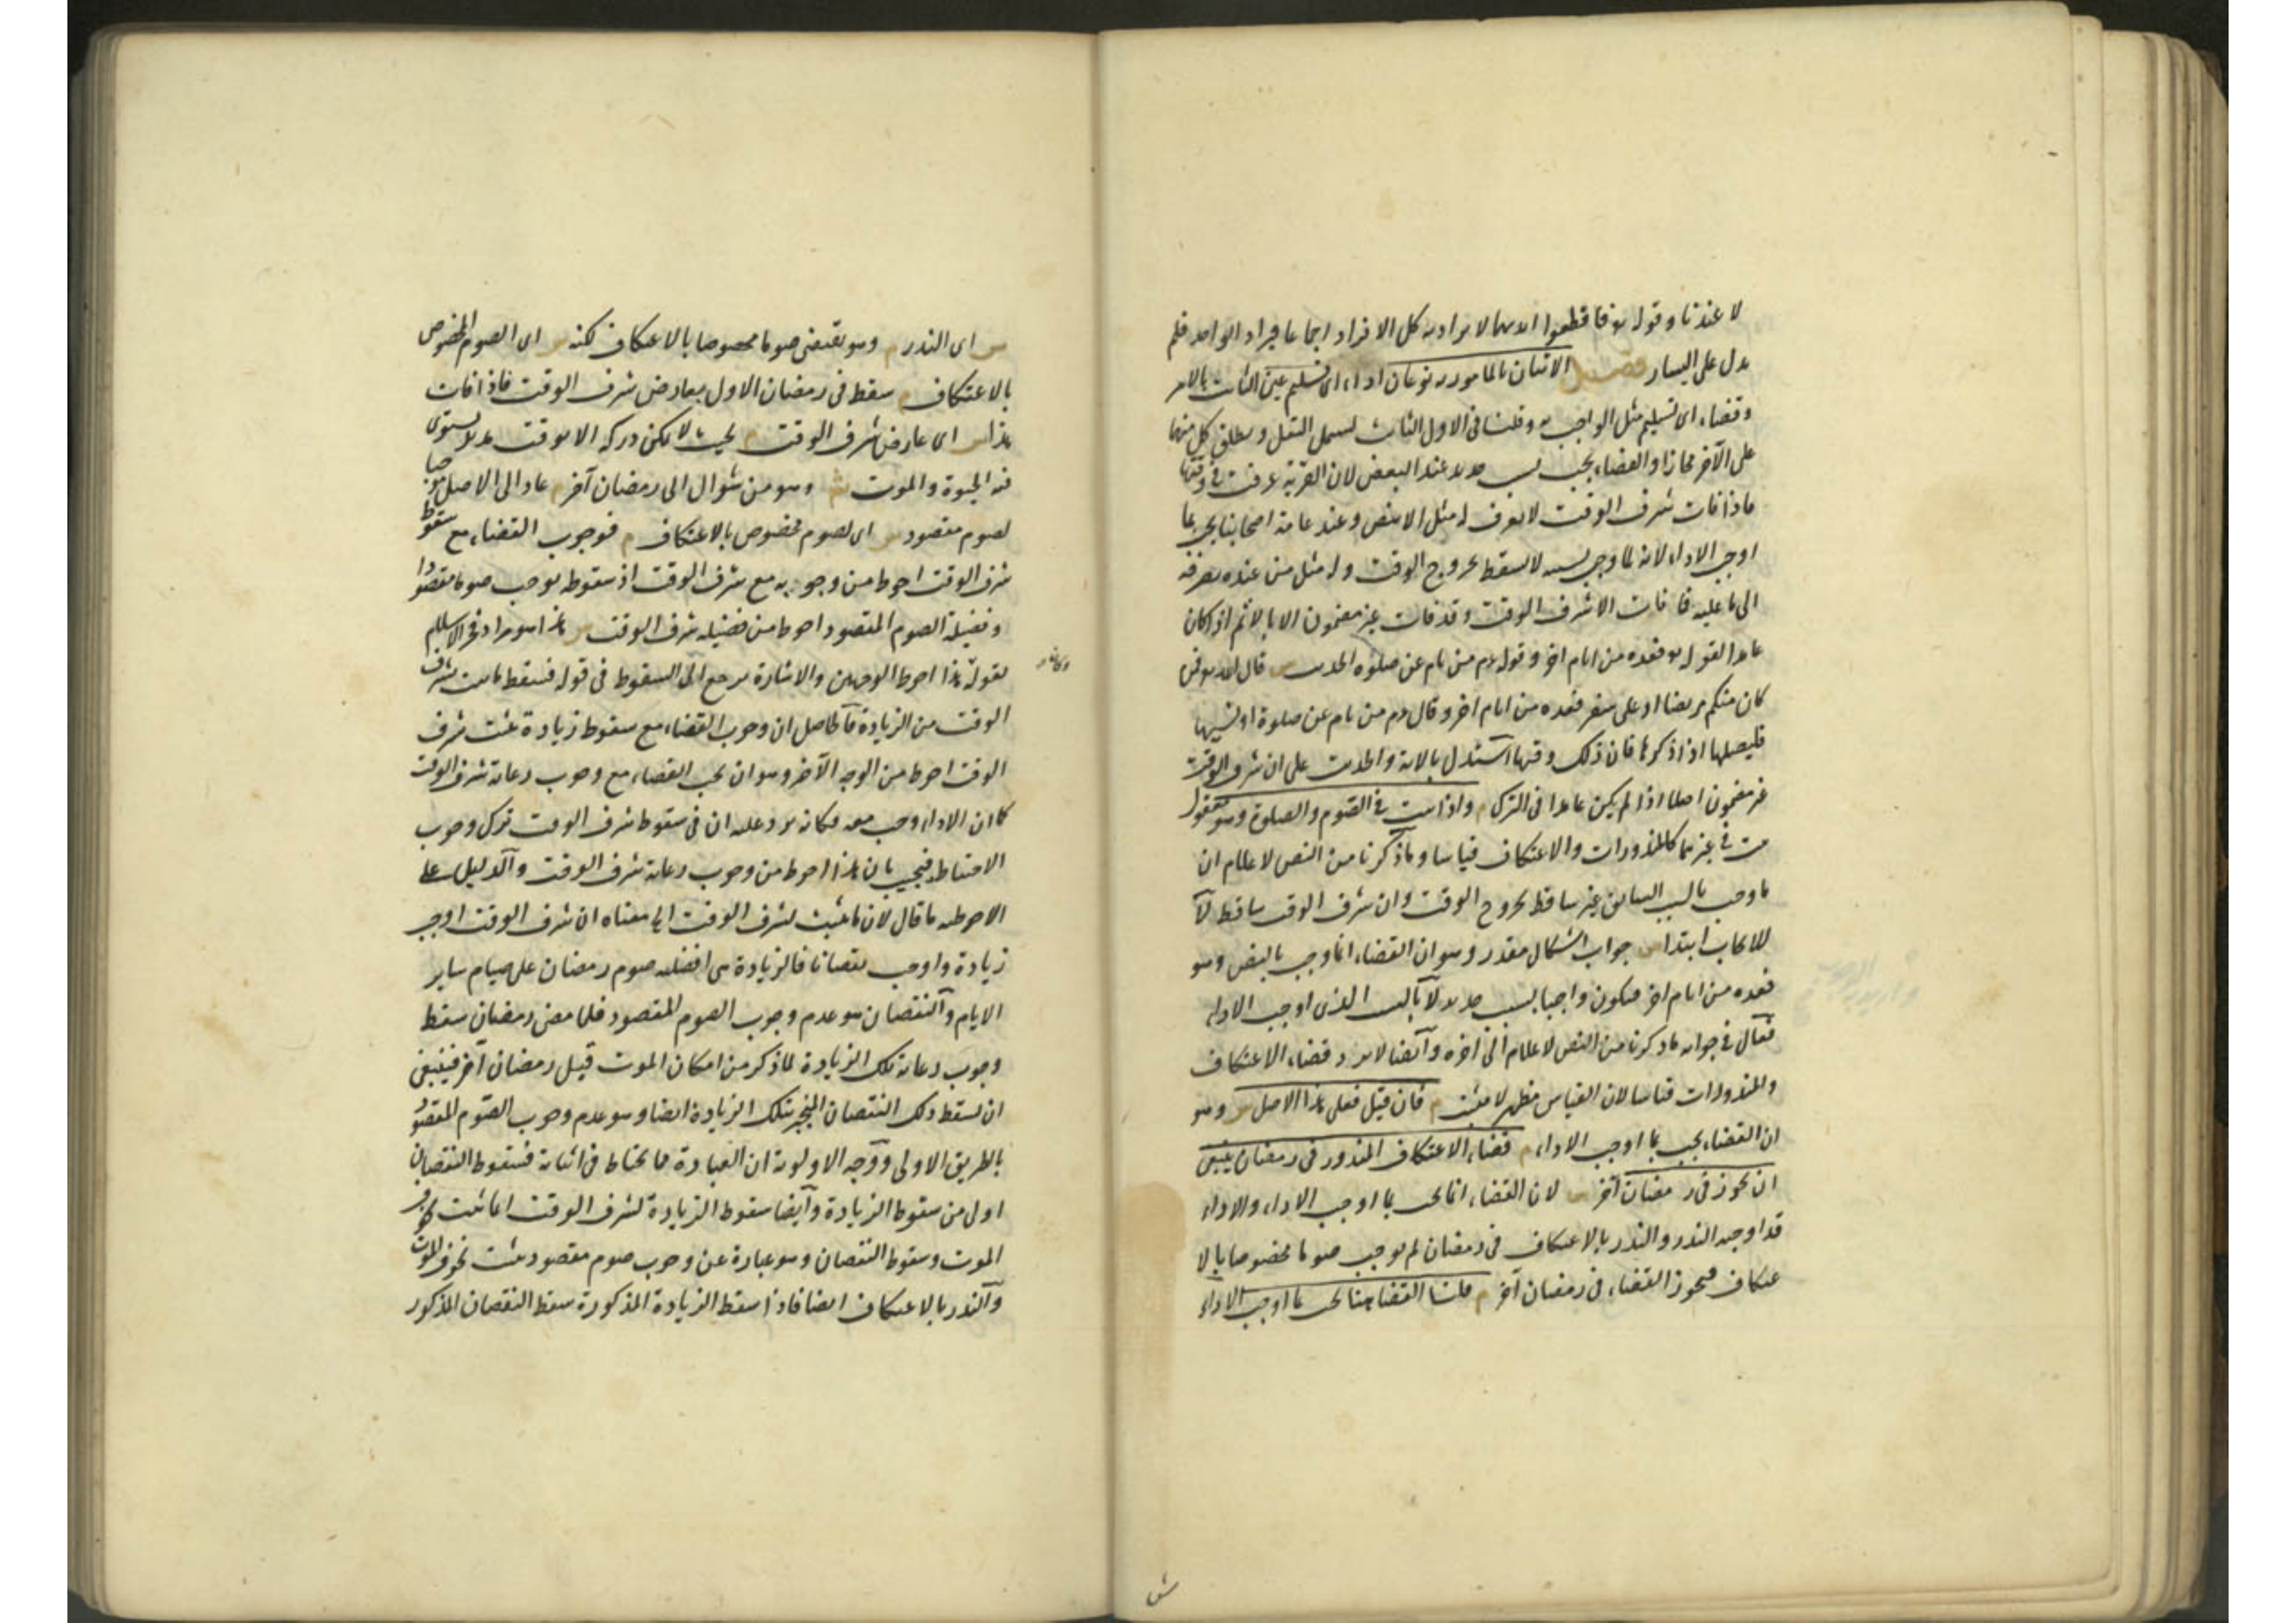 لا عندنا وقوله تعالى فاقطعوا ايديهما لا يراد به كل الافراد اجماعا فيراد الواحد فلم
يدل على اليسار فصل الاتيان بالمامور به نوعان اداء اى تسليم عين الثابت بالامر
وقضاء اى تسليم مثل الواجب به وقلنا فى الاول الثابت ليشمل النفل ويطلق كل منهما
على الآخر مجازا والقضاء يجب بسبب جديد عند البعض لان القربة عرفت فى وقتها
فاذا فات شرف الوقت لا يعرف له مثل الا بنص وعند عامة اصحابنا يجب بما
اوجب الاداء لانه لما وجب بسببه لا يسقط بخروج الوقت وله مثل من عنده يصرفه
الى ما عليه فما فات الا شرف الوقت وقد فات غير مضمون الا بالاثم اذا كان
عامدا لقوله تع فعدة من ايام اخر وقوله عم من نام عن صلوة الحديث س قال الله تع فمن
كان منكم مريضا او على سفر فعدة من ايام اخر وقال عم من نام عن صلوة او نسيها
فليصلها اذا ذكرها فان ذلك وقتها استدل بالاية والحديث على ان شرف الوقت
غير مضمون اصلا اذا لم يكن عامدا فى الترك م واذا ثبت فى الصوم والصلوة وهو معقول
ثبت فى غيرهما كالمنذورات والاعتكاف قياسا وما ذكرنا من النص لاعلام ان
ما وجب بالسبب السابق غير ساقط بخروج الوقت وان شرف الوقت ساقط لا
للايجاب ابتداء س جواب اشكال مقدر وهو ان القضاء انما وجب بالنص وهو
فعدة من ايام اخر فيكون واجبا بسبب جديد لا بالسبب الذى اوجب الاداء
فقال فى جوابه ما ذكرنا من النص لاعلام الى اخره وايضا لا يرد قضاء الاعتكاف
والمنذورات قياسا لان القياس مظهر لا مثبت م فان قيل فعلى هذا الاصل س وهو
ان القضاء يجب بما اوجب الاداء م قضاء الاعتكاف المنذور فى رمضان ينبغى
ان يجوز فى رمضان آخر س لان القضاء انما يجب بما اوجب الاداء والاداء
قد اوجبه النذر والنذر بالاعتكاف فى رمضان لم يوجب صوما مخصوصا بالا
عتكاف فيجوز القضاء فى رمضان آخر م قلنا القضاء هنا يجب بما اوجب الاداء
س اى النذر م وهو يقتضى صوما مخصوصا بالاعتكاف لكنه س اى الصوم المخصوص
بالاعتكاف م سقط فى رمضان الاول بعارض شرف الوقت فاذا فات
هذا س اى عارض شرف الوقت م بحيث لا يمكن دركه الا بوقت مديد يستوى
فيه الحيوة والموت س وهو من شوال الى رمضان آخر م عاد الى الاصل موجبا
لصوم مقصود س اى لصوم مخصوص بالاعتكاف م فوجوب القضاء مع سقوط
شرف الوقت احوط من وجوبه مع شرف الوقت اذ سقوطه يوجب صوما مقصودا
وفضيلة الصوم المقصود احوط من فضيلة شرف الوقت س هذا هو مراد فخر الاسلام
بقوله هذا احوط الوجهين والاشارة ترجع الى السقوط فى قوله فسقط ما ثبت بشرف
الوقت من الزيادة فالحاصل ان وجوب القضاء مع سقوط زيادة ثبتت بشرف
الوقت احوط من الوجه الآخر وهو ان يجب القضاء مع وجوب رعاية شرف الوقت
كما ان الاداء وجب معه فكانه يرد عليه ان فى سقوط شرف الوقت ترك وجوب
الاحتياط فيجيب بان هذا احوط من وجوب رعاية شرف الوقت والدليل على
الاحوطية ما قال لان ما ثبت بشرف الوقت الى معناه ان شرف الوقت اوجب
زيادة واوجب نقصانا فالزيادة هى افضلية صوم رمضان على صيام ساير
الايام والنقصان هو عدم وجوب الصوم المقصود فلما مضى رمضان سقط
وجوب رعاية تلك الزيادة لما ذكر من امكان الموت قبل رمضان آخر فينبغى
ان يسقط ذلك النقصان المنجبر بتلك الزيادة ايضا وهو عدم وجوب الصوم المقصود
بالطريق الاولى ووجه الاولوية ان العبادة مما يحتاط فى اثباته فسقوط النقصان
اولى من سقوط الزيادة وايضا سقوط الزيادة لشرف الوقت انما ثبت لخوف
الموت وسقوط النقصان وهو عبارة عن وجوب صوم مقصود يثبت بخوف الموت
والنذر بالاعتكاف ايضا فاذا سقط الزيادة المذكورة سقط النقصان المذكور